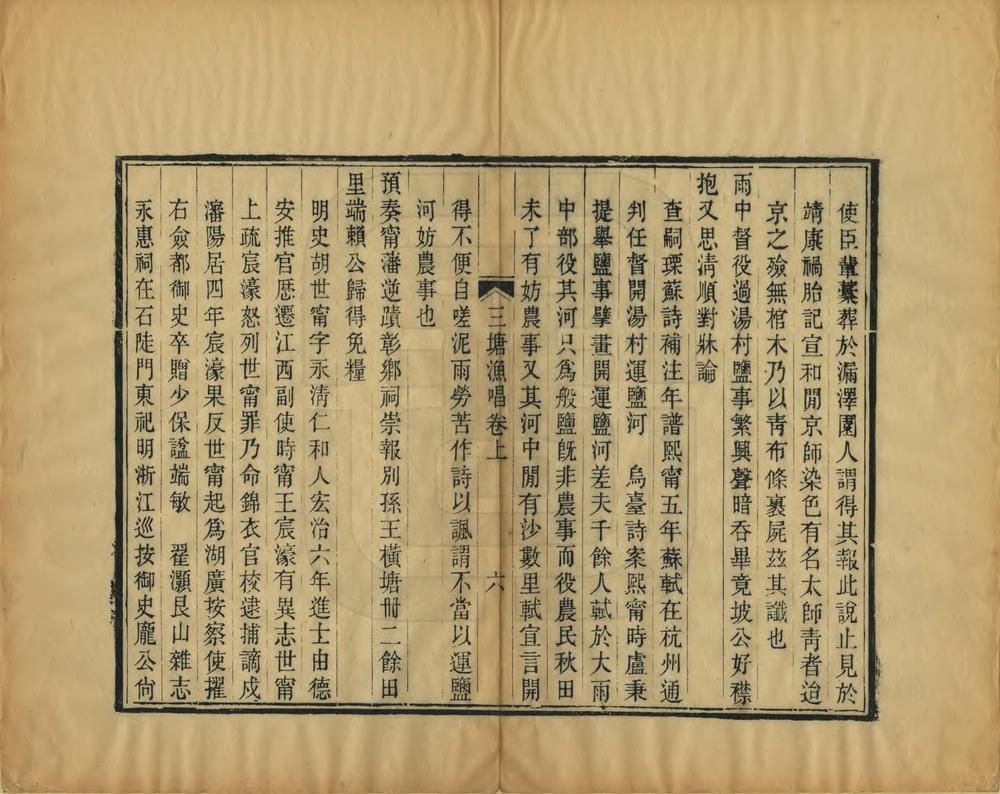 使臣輩藁葬於漏澤園人謂得其報此說止見於
靖康禍胎記宣和閒京師染色有名太師靑者迨
京之殮無棺木乃以靑布條裹屍茲其讖也
雨中督役過湯村鹽事繁興聲暗吞畢竟坡公好襟
抱又思淸順對牀論
查嗣瑮蘇詩補注年譜熙甯五年蘇軾在杭州通
判任督開湯村運鹽河　烏臺詩案熙甯時盧秉
提舉鹽事擘畫開運鹽河差夫千餘人軾於大雨
中部役其河只爲般鹽旣非農事而役農民秋田
未了有妨農事又其河中閒有沙數里軾宣言開
三塘漁唱卷上　六
得不便自嗟泥雨勞苦作詩以諷謂不當以運鹽
河妨農事也
預奏甯藩逆蹟彰鄉祠崇報別孫王橫塘冊二餘田
里端賴公歸得免糧
明史胡世甯字永淸仁和人宏治六年進士由德
安推官歷遷江西副使時甯王宸濠有異志世甯
上疏宸濠怒列世甯罪乃命錦衣官校逮捕謫戍
瀋陽居四年宸濠果反世甯起爲湖廣按察使擢
右僉都御史卒贈少保諡端敏　翟灝艮山雜志
永惠祠在石陡門東祀明浙江巡按御史龐公尙